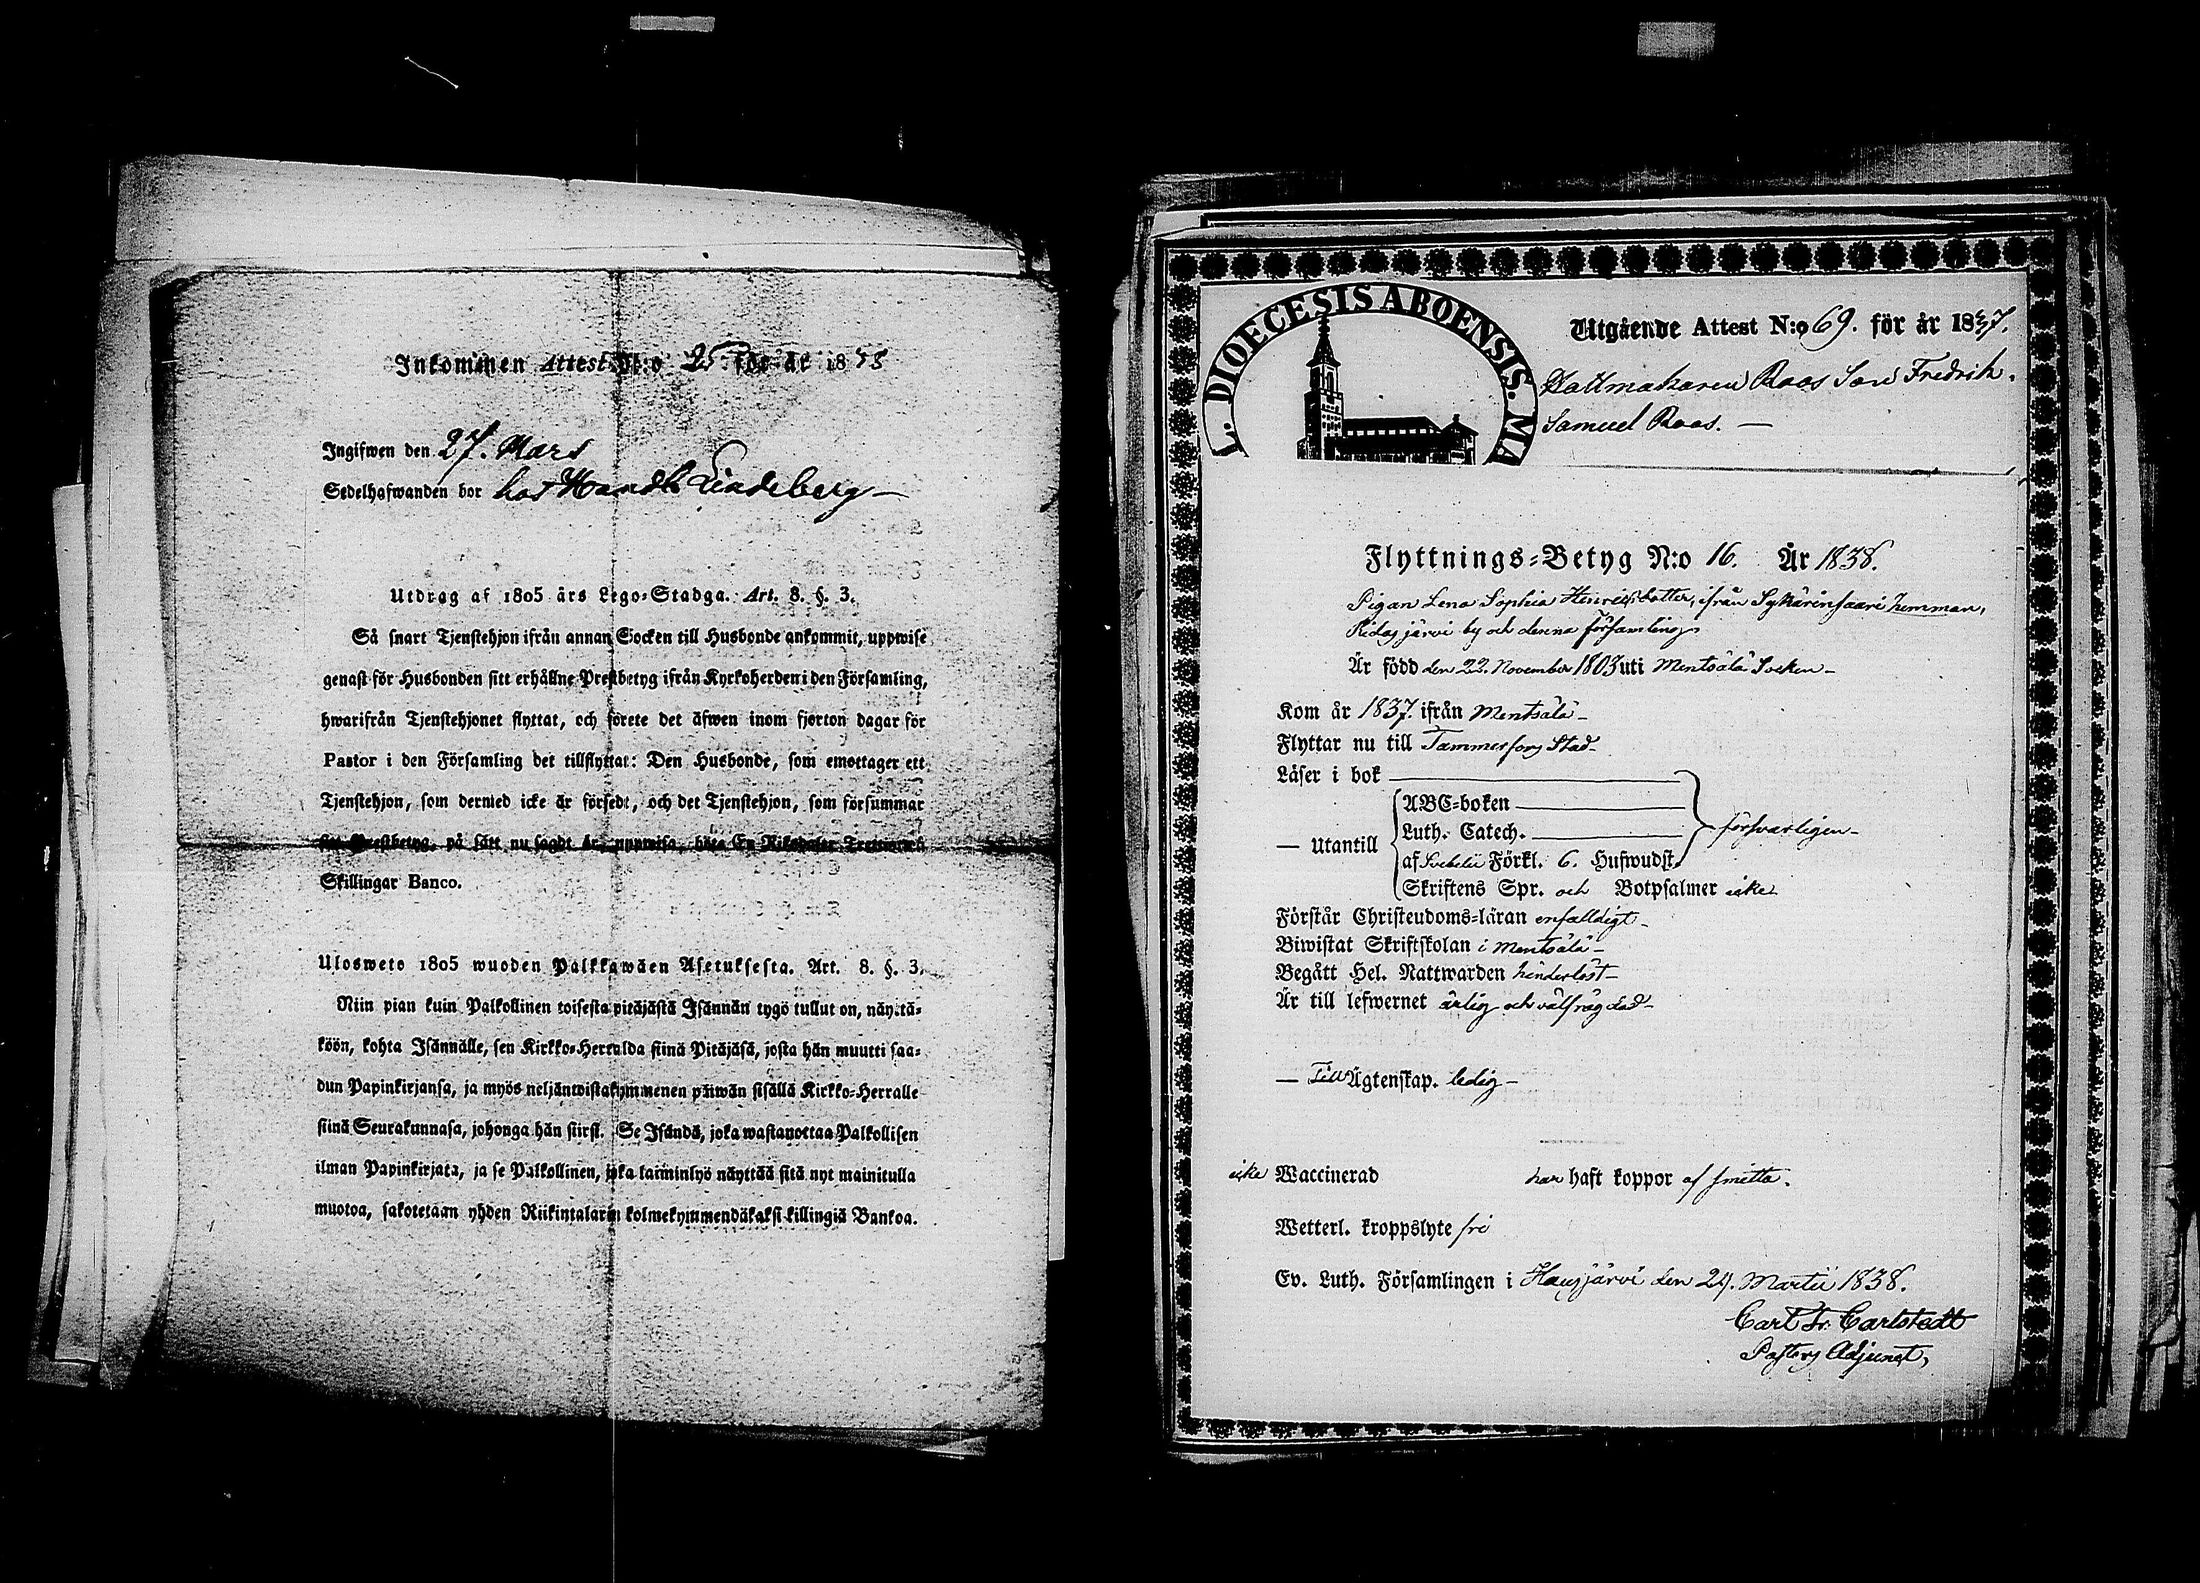 Inkommen Attest N:o 25 för år 1838
Ingifwen den 27. Mars
Sedelhafwanden bor hos Handl. Lindeberg
Utdrag af 1805 års Lego-Stadga. Art. 8. §. 3.
Så snart Tjenstehjon ifrån annan Socken till Husbonde ankommit, uppwise
genast för Husbonden sitt erhållne Prestbetyg ifrån Kyrkoherden i den Församling,
hwarifrån Tjenstehjonet flyttat, och förete det äfwen inom fjorton dagar för
Pastor i den Församling det tillflyttat: Den Husbonde, som emottager ett
Tjenstehjon, som dermed icke är försedt, och det Tjenstehjon, som försummar
sitt Prestbetyg, på sätt nu sagdt är, uppwisa, böta En Riksdaler Trettiotwå
Skillingar Banco.
Ulosweto 1805 wuoden Palkkawäen Asetuksesta. Art. 8. §. 3.
Niin pian kuin Palkollinen toisesta pitäjästä Isännän tygö tullut on, näyttä-
köön, kohta Isännälle, sen Kirkko-Herralda siinä Pitäjäsä, josta hän muutti saa-
dun Papinkirjansa, ja myös neljäntoistakymmenen päiwän sisällä Kirkko-Herralle
siinä Seurakunnasa, johonga hän siirsi. Se Isändä, joka wastanottaa Palkollisen
ilman Papinkirjata, ja se Palkollinen, joka laiminlyö näyttää sitä nyt mainitulla
muotoa, sakotetaan yhden Riikintalarin kolmekymmendäkaksi killingiä Bankoa.
L. DIOECESIS ABOENSIS. MA
Utgående Attest N:o 69. för år 1837.
Hattmakaren Roos Son Fredrik
Samuel Roos. —
Flyttnings-Betyg N:o 16. År 1838.
Pigan Lena Sophia Henricsdotter, ifrån Sykärinsaari hemman,
Ridasjärvi by och denna församling.
Är född den 22. November 1803 uti Mentsälä Socken —
Kom år 1837. ifrån Mentsälä —
Flyttar nu till Tammerfors Stad —
Läser i bok
ABC-boken
Luth. Catech. försvarligen —
— Utantill
af Svebelii Förkl. 6. Hufwudst.
Skriftens Spr. och Botpsalmer icke
Förstår Christendoms-läran enfalldigt —
Biwistat Skriftskolan i Mentsälä —
Begått Hel. Nattwarden hinderlöst —
Är till lefwernet ärlig och välfrägdad —
— Till Ägtenskap. ledig —
icke Waccinerad har haft koppor af smitta.
Wetterl. kroppslyte fri
Ev. Luth. Församlingen i Hausjärvi den 24. Martii 1838.
Carl Fr. Carlstedt
Pastors Adjunct,